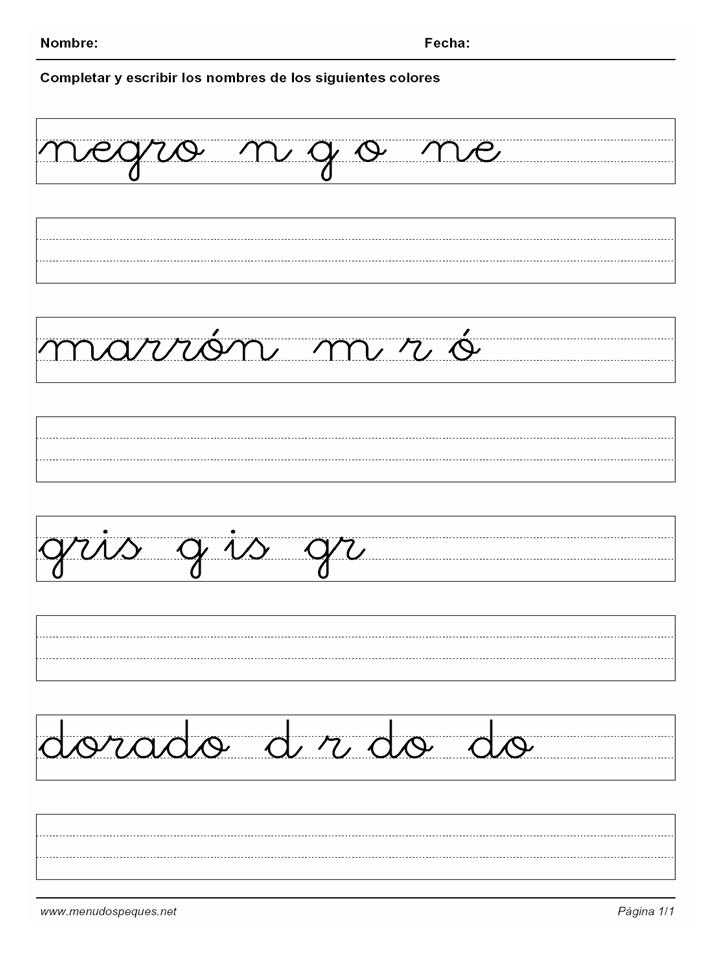 Nombre: Fecha:
Completar y escribir los nombres de los siguientes colores
negro n g o ne
marrón m r ó
gris g is gr
dorado d r do do
www.menudospeques.net Página 1/1